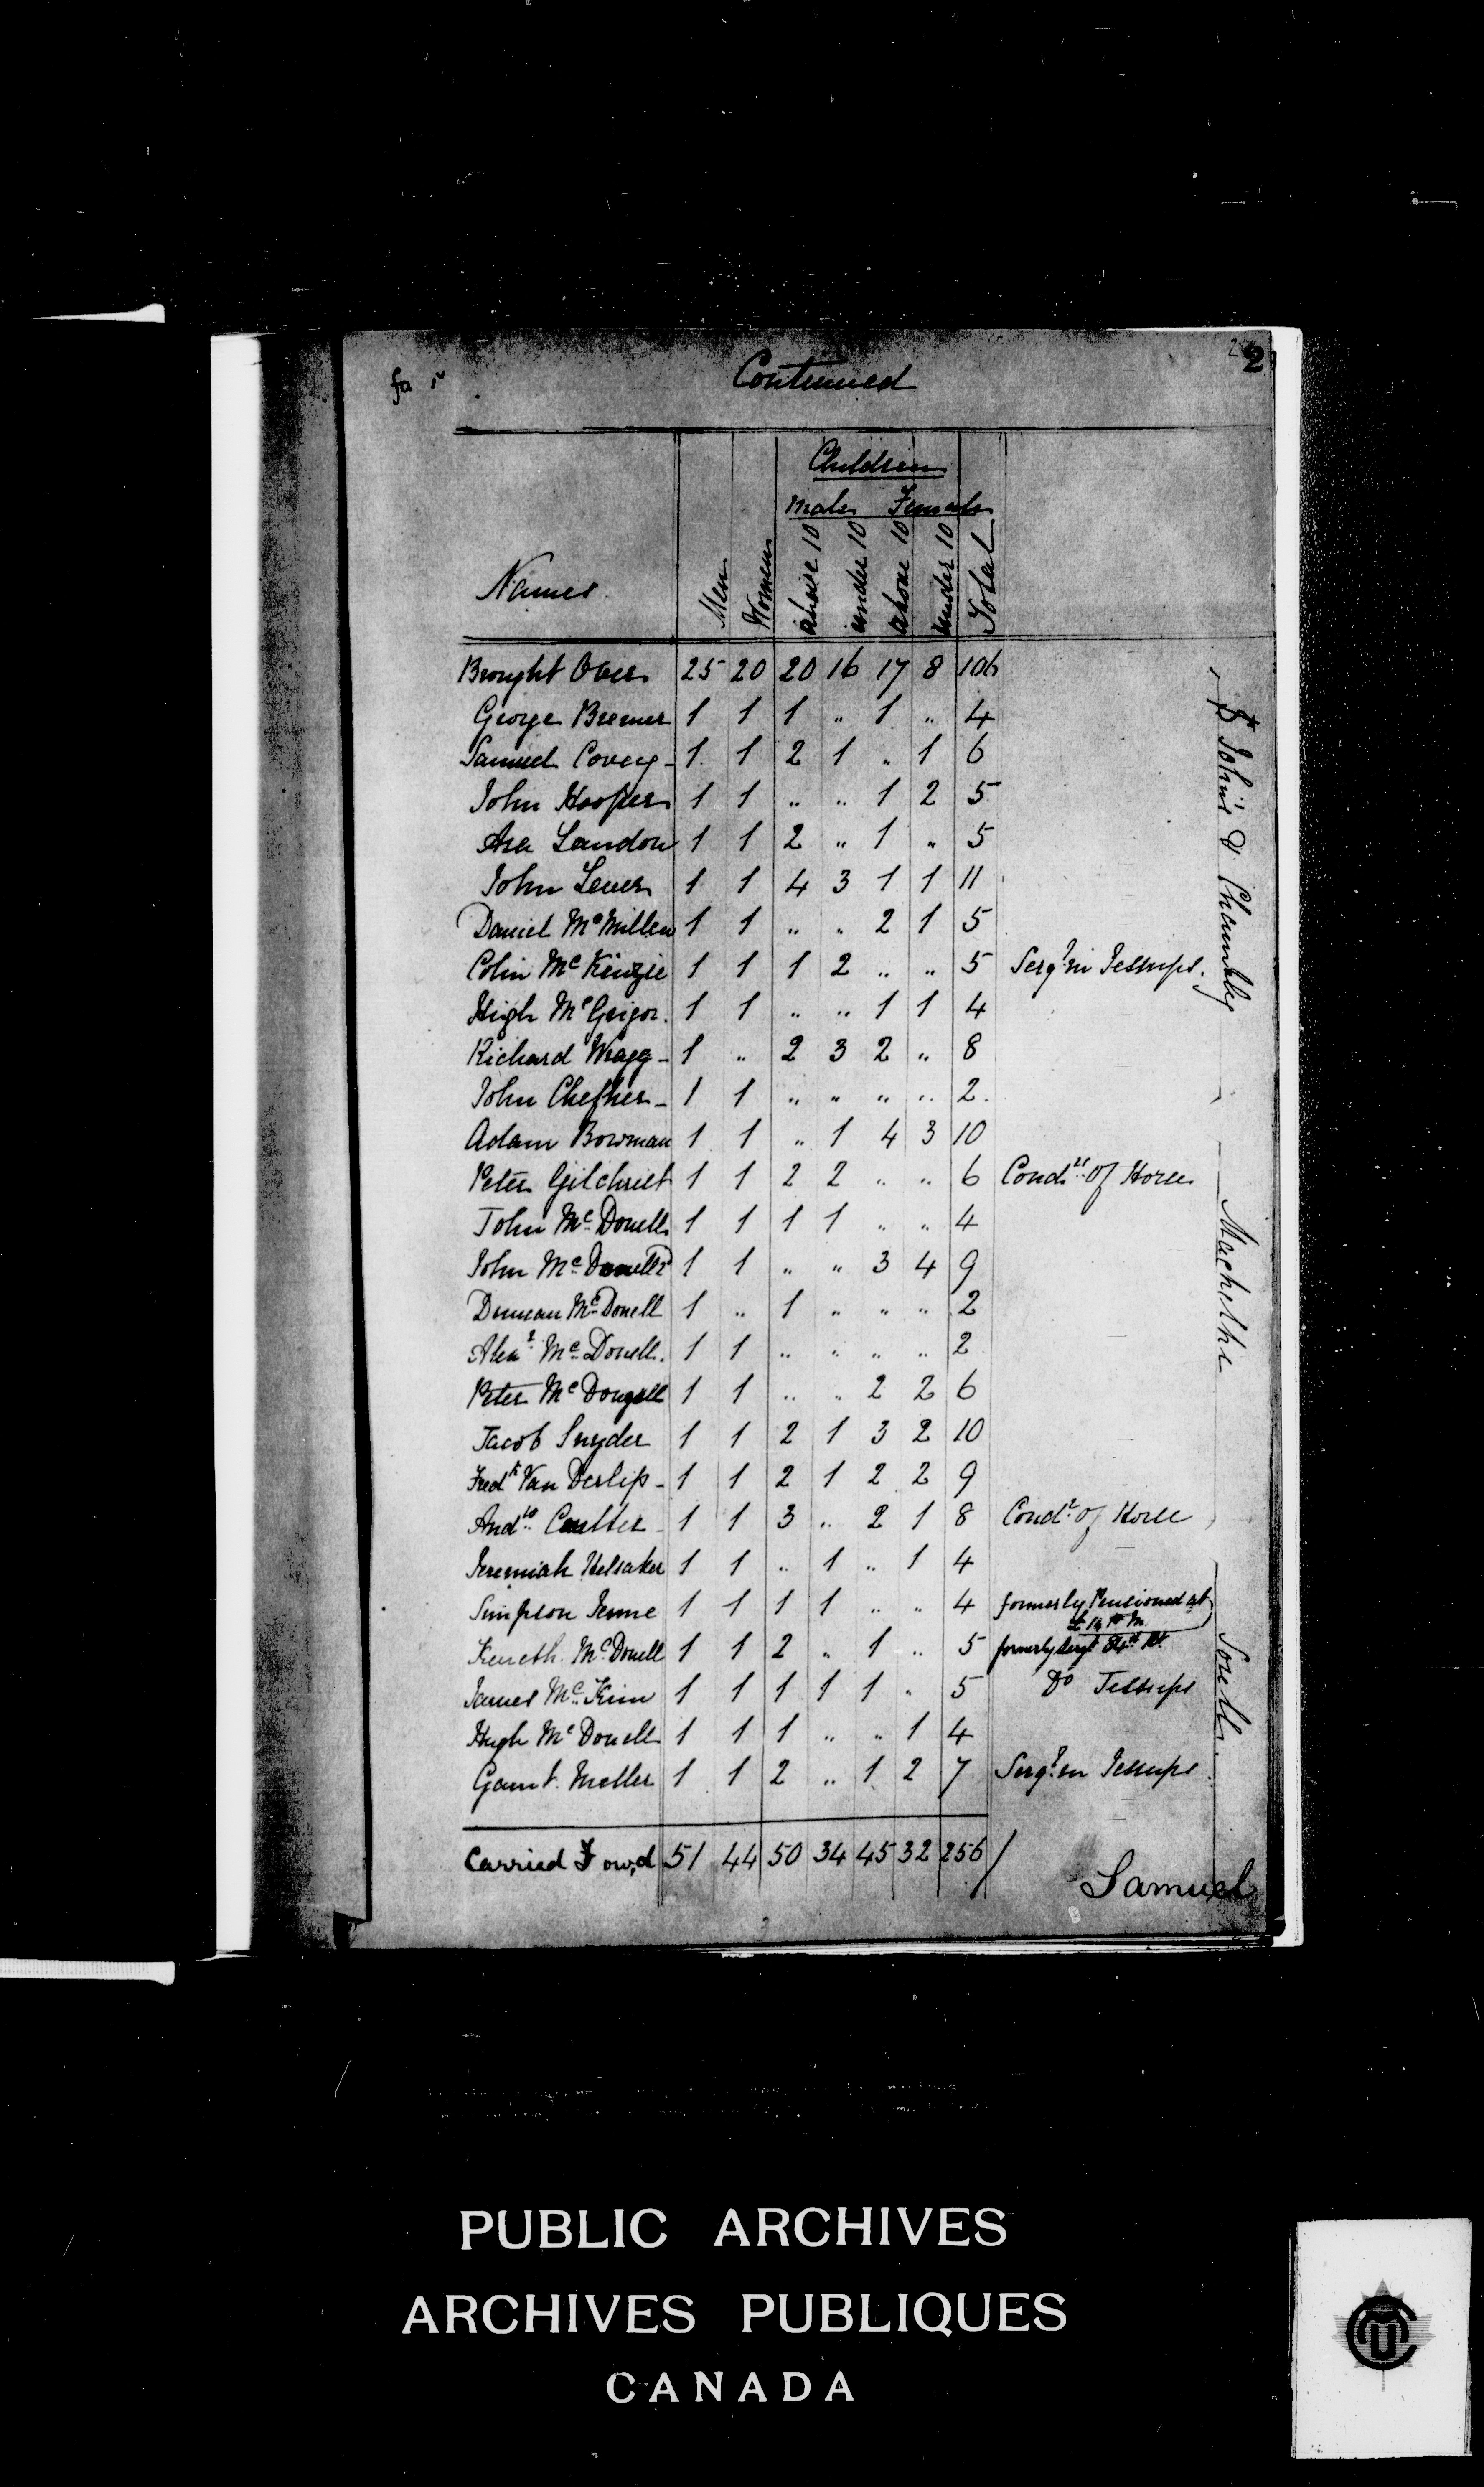 2
Continued
Children
Males Females
Names Men Women above 10 under 10 above 10 under 10 Total
Brought Over 25 20 20 16 17 8 106
George Bremer 1 1 1 " 1 " 4
Samuel Covey - 1 1 2 1 " 1 6
John Hooper 1 1 " " 1 2 5
Asa Landon 1 1 2 " 1 " 5
John Lever 1 1 4 3 1 1 11
Daniel McMillen 1 1 " " 2 1 5
Colin McKinzie 1 1 1 2 " " 5 Sergt. in Jessups.
Hugh McGrigor. 1 1 " " 1 1 4
Richard Wragg - 1 " 2 3 2 " 8
John - 1 1 " " " " 2.
Adam Bowman 1 1 " 1 4 3 10
Peter Gilchrist 1 1 2 2 " " 6 Condr. of Horse
John McDonell 1 1 1 1 " " 4
John McDonell 2 1 1 " " 3 4 9
Duncan McDonell 1 " 1 " " " 2
Alexr. McDonell. 1 1 " " " " 2
Peter McDougall 1 1 " " 2 2 6
Jacob Snyder 1 1 2 1 3 2 10
Fredk Van Derlip - 1 1 2 1 2 2 9
Andw. Coulter - 1 1 3 " 2 1 8 Condr. of Horse
Jeremiah 1 1 " 1 " 1 4
Simpson Jenne 1 1 1 1 " " 4 formerly Pensioned at
£
Keneth. McDonell 1 1 2 " 1 " 5 formerly Sergt 84th Rt.
James McKim 1 1 1 1 1 " 5 Do Jessups
Hugh McDonell 1 1 1 " " 1 4
Miller 1 1 2 " 1 2 7 Sergt. in Jessups.
Carried Forwd 51 44 50 34 45 32 256 /
Samuel
St John's & Chambly
Machiche
Sorell.
PUBLIC ARCHIVES
ARCHIVES PUBLIQUES
CANADA